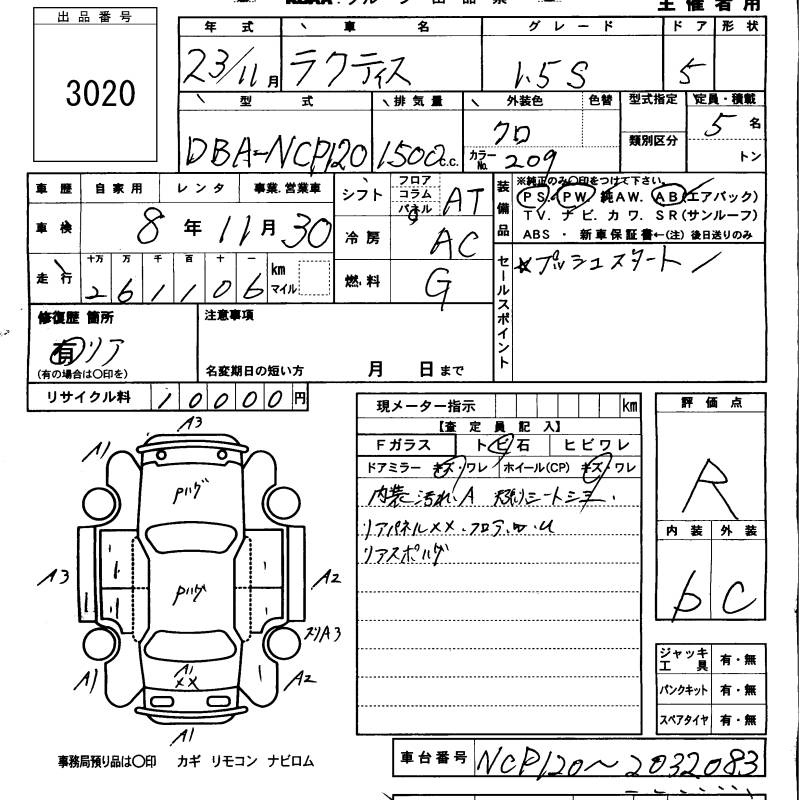 主催者用
出品番号
3020
年式 車名 グレード ドア 形状
23/11月 ラクティス 1.5S 5
型式 排気量 外装色 色替 型式指定 定員・積載
DBA-NCP120 1500c.c. クロ 類別区分 5名
カラーNo. 209 トン
車歴 自家用 レンタ 事業.営業車
車検 8年11月30
走行 十万 万 千 百 十 一 km マイル
261106
シフト フロア コラム パネル AT
冷房 AC
燃料 G
装備品
※純正のみ〇印をつけて下さい。
PS. PW 純AW. AB(エアバック)
TV. ナビ. カワ. SR(サンルーフ)
ABS ・ 新車保証書←(注) 後日送りのみ
セールスポイント
☆プッシュスタート
修復歴 箇所
有 リア
(有の場合は〇印を)
注意事項
名変期日の短い方 月 日まで
リサイクル料 10000円
現メーター指示 km
【査定員記入】
Fガラス トビ石 ヒビワレ
ドアミラー キズ・ワレ ホイール(CP) キズ・ワレ
内装 汚れ.A シートシミ.
リアパネルXX.フロア.U
リアスポハゲ
評価点
R
内装 外装
b C
A3
A1
Pハゲ
A3 Pハゲ A2
ズリA3
A1 A1 XX A2
A1
ジャッキ 工具 有・無
パンクキット 有・無
スペアタイヤ 有・無
事務局預り品は〇印 カギ リモコン ナビロム
車台番号 NCP120～2032083